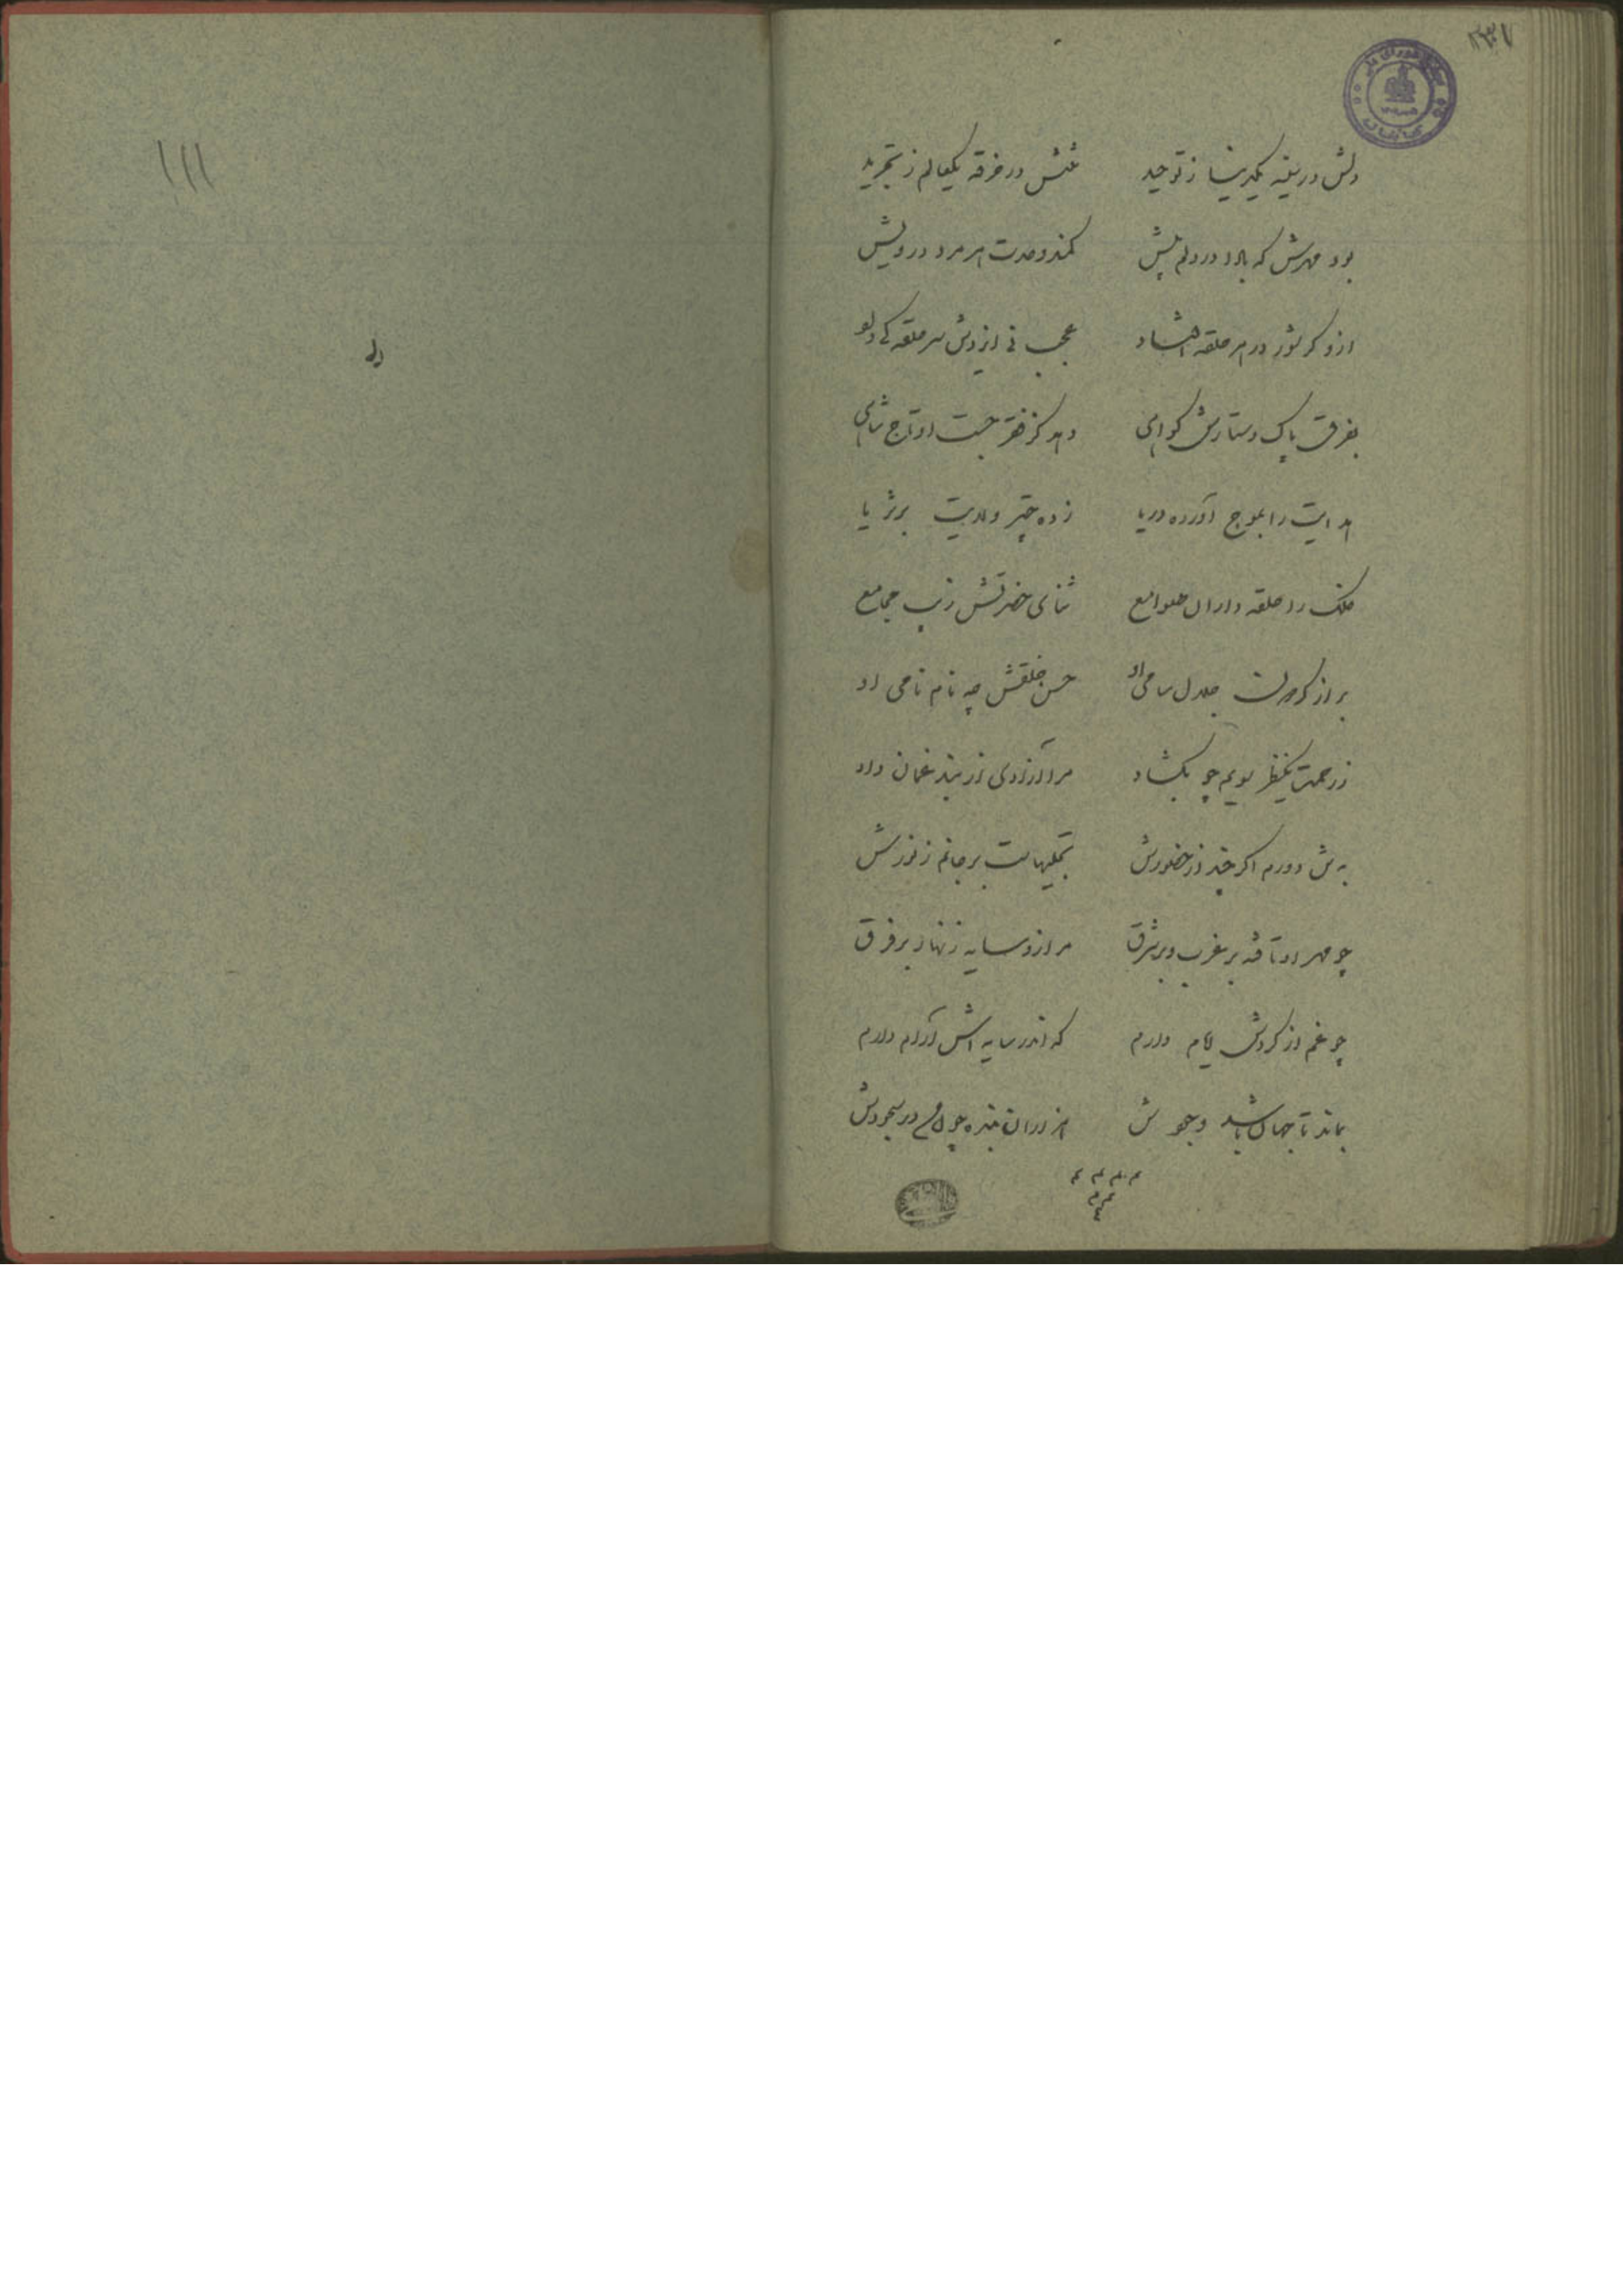 دلش در سینه یکدریا ز توحید تنش در خرقه یکعالم ز تجرید
بود مهرش که بادا در دلم بیش کمند وحدت هر مرد درویش
ازو گر شور در هر حلقه افتاد عجب نی از وی سر حلقه
بفرق پاک دستارش گواهی دهد کز فقر جست او تاج شاهی
هدایت را بموج آورده دریا زده چتر ولایت بر ثریا
فلک را حلقه داران صوامع ثنای حضرتش زیب مجامع
بر از جلال سامی او حسن خلقش چه نام نامی او
ز رحمت یکنظر سویم چو بگشاد مرا آزادی از بند غمان داد
به تن دورم اگر چند از حضورش تجلیهاست بر جانم ز نورش
چو مهر او تافته بر غرب و بر شرق مرا زو سایه زنهار بر فرق
چو غم از گردش ایام دارم که اندر سایه اش آرام دارم
بماند تا جهان باشد وجودش هزاران بنده چون من در سجودش